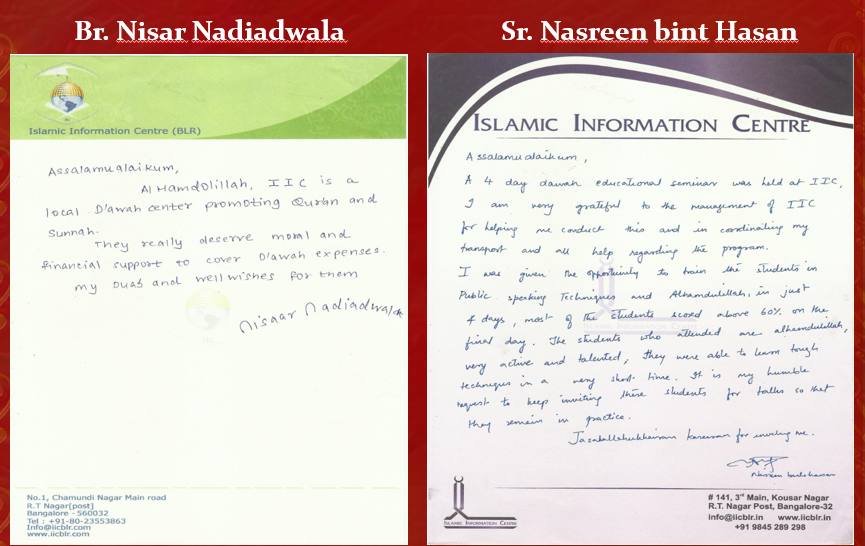 Br. Nisar Nadiadwala
Islamic Information Centre (BLR)
Assalamualaikum,
AlHamdolillah, IIC is a
local D'awah center promoting Quran and
Sunnah.
They really deserve moral and
financial support to cover D'awah expenses.
my Duas and wellwishes for them
Nisaar Nadiadwala
IIC
No.1, Chamundi Nagar Main road
R.T Nagar[post]
Bangalore - 560032
Tel : +91-80-23553863
Info@iicblr.com
www.iicblr.com
Sr. Nasreen bint Hasan
ISLAMIC INFORMATION CENTRE
Assalamu alaikum,
A 4 day dawah educational seminar was held at IIC,
I am very grateful to the management of IIC
for helping me conduct this and in cordinating my
transport and all help regarding the program.
I was given the opportunity to train the students in
Public speaking Techniques and Alhamdulillah, in just
4 days, most of the students scord above 60% on the
final day. The students who attended are alhamdulillah,
very active and talented, they were able to learn tough
techniques in a very short time. It is my humble
request to keep inviting these students for talks so that
they remain in practice.
for inviting me.
ISLAMIC INFORMATION CENTRE
# 141, 3rd Main, Kousar Nagar
R.T. Nagar Post, Bangalore-32
info@iicblr.in www.iicblr.in
+91 9845 289 298